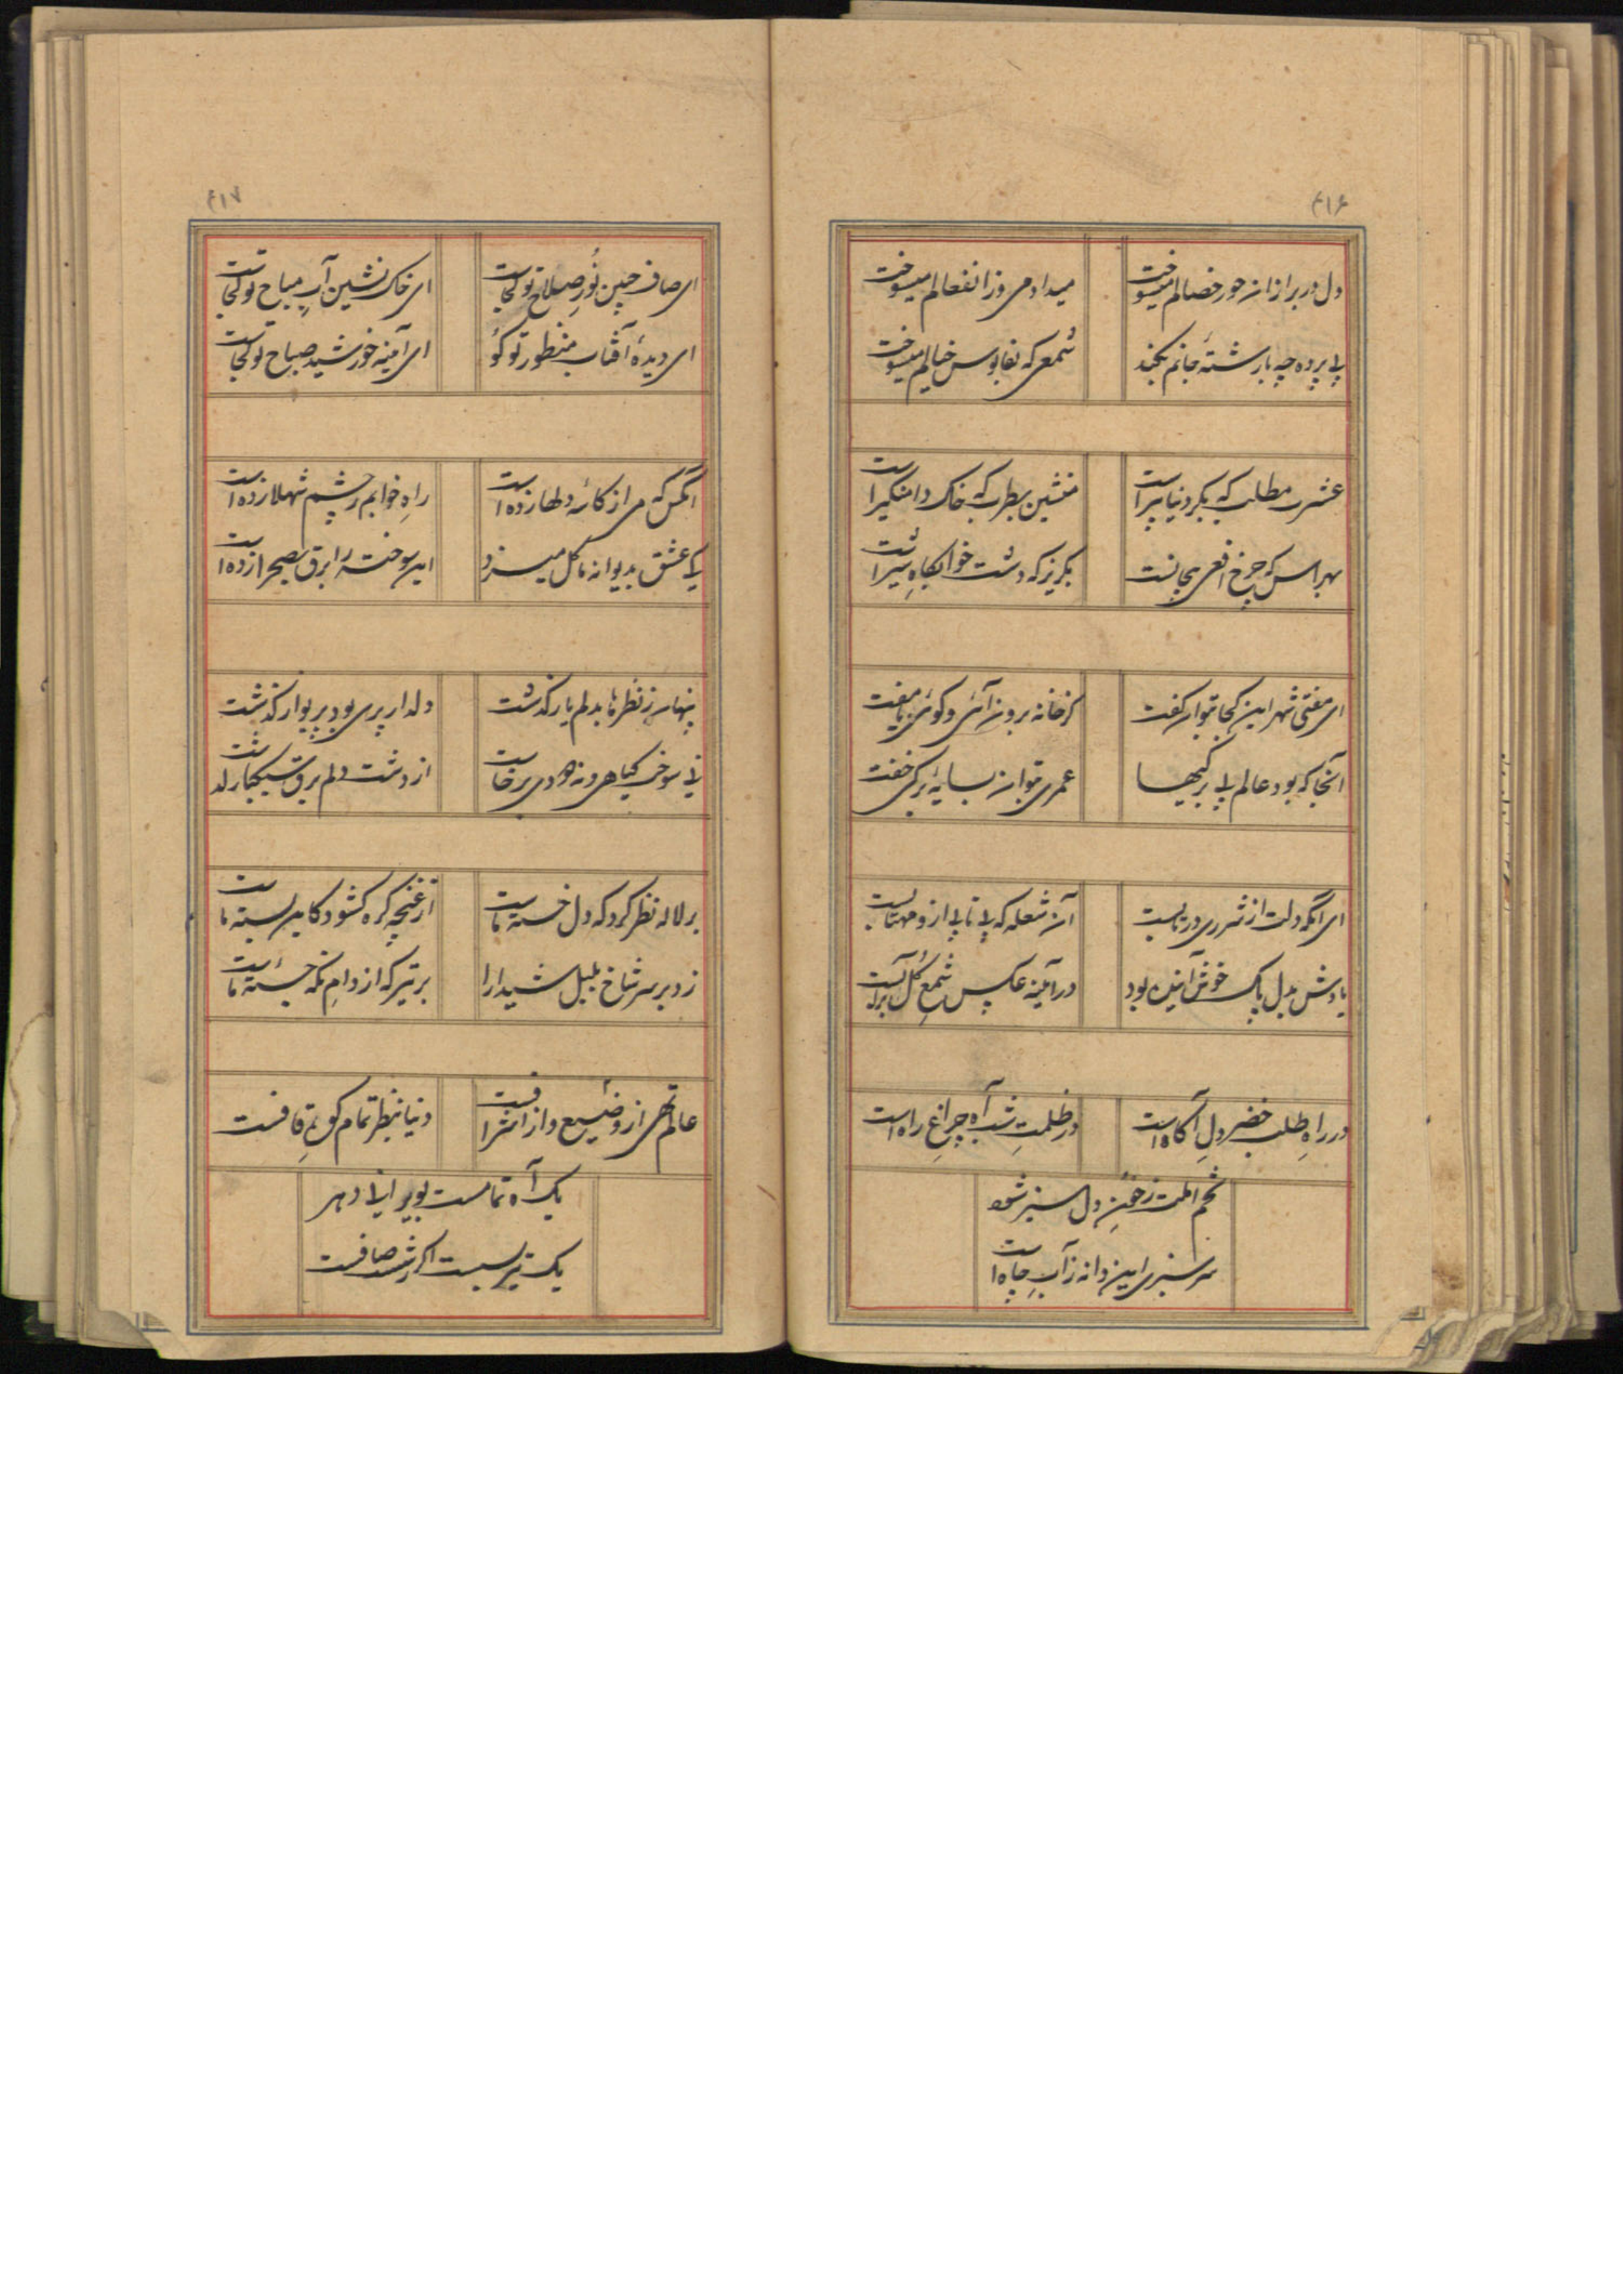 ۴۱۶
دل در بر ازان حور خصالم میسوخت
میداد می و ز انفعالم میسوخت
بی پرده چه بارشتهٔ جانم بکند
شمعی که بفانوس خیالم میسوخت
عشرت مطلب که بکر دنیا پیر است
منشین بطرب که خاک دامنگیر است
بهراس که چرخ افعی بیجانست
بگریز که دشت خوابگاه شیر است
ای مفتی شهر این کجا بتوان گفت
کز خانه برون آئی و کوئی با مفت
آنجا که بود عالم بی برگیها
عمری بتوان بسایهٔ برگی خفت
ای آنکه دلت از شرری در تابست
آن شعله که بی تابی ازو مهتابست
یادش بدل پاک خوش آینده بود
در آینه عکس شمع گل برآبست
در راهِ طلب خضر دلِ آگاه است
در ظلمتِ شب آه چراغِ راه است
تخم املت ز خونِ دل سبز شود
سرسبزی این دانه ز آبِ چاه است
۴۱۷
ای صاف جبین نُورِ صلاح تو کجاست
ای خاک نشین آبِ مباح تو کجاست
ای دیدهٔ آفتاب منظور تو کو
ای آینه خورشید صباح تو کجاست
آنکس که می از کاسهٔ دلها زده است
راهِ خوابم ز چشم شهلا زده است
کی عشق بدیوانه ما گل میزد
این سوخته را برق بصحرا زده است
پنهان ز نظرها بدلم یار گذشت
دلدار پری بود پریوار گذشت
نی سوخت گیاهی و نه دودی برخاست
از دشت دلم برق سبکبار گذشت
بر لاله نظر کرد که دل خستهٔ ماست
از غنچه گره گشود کاین بستهٔ ماست
زد بر سر شاخ بلبل شیدا را
بر تیر که از دامِ نگه جستهٔ ماست
عالم تهی از وضیع و از اشرافست
دنیا بنظر تمام کوهِ قافست
یک آه تمامست بویرانی دهر
یک تیر بسست اگر شستت صافست